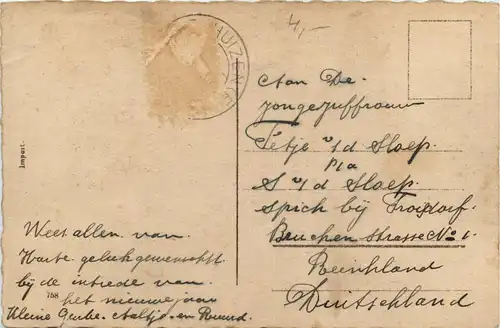 4,-
HUIZEN
Aan De.
jongejuffrouw
Tetje v/d Sloep.
p/a
S v/d Sloep.
spich bij Troisdorf.
Bruchen Strasse No 1.
Reinhland
Duitschland
Import.
Weet allen van
Harte geluk gewenscht.
bij de intrede van
het nieuwe jaar
758
Kleine Aaltje en Ruurd.